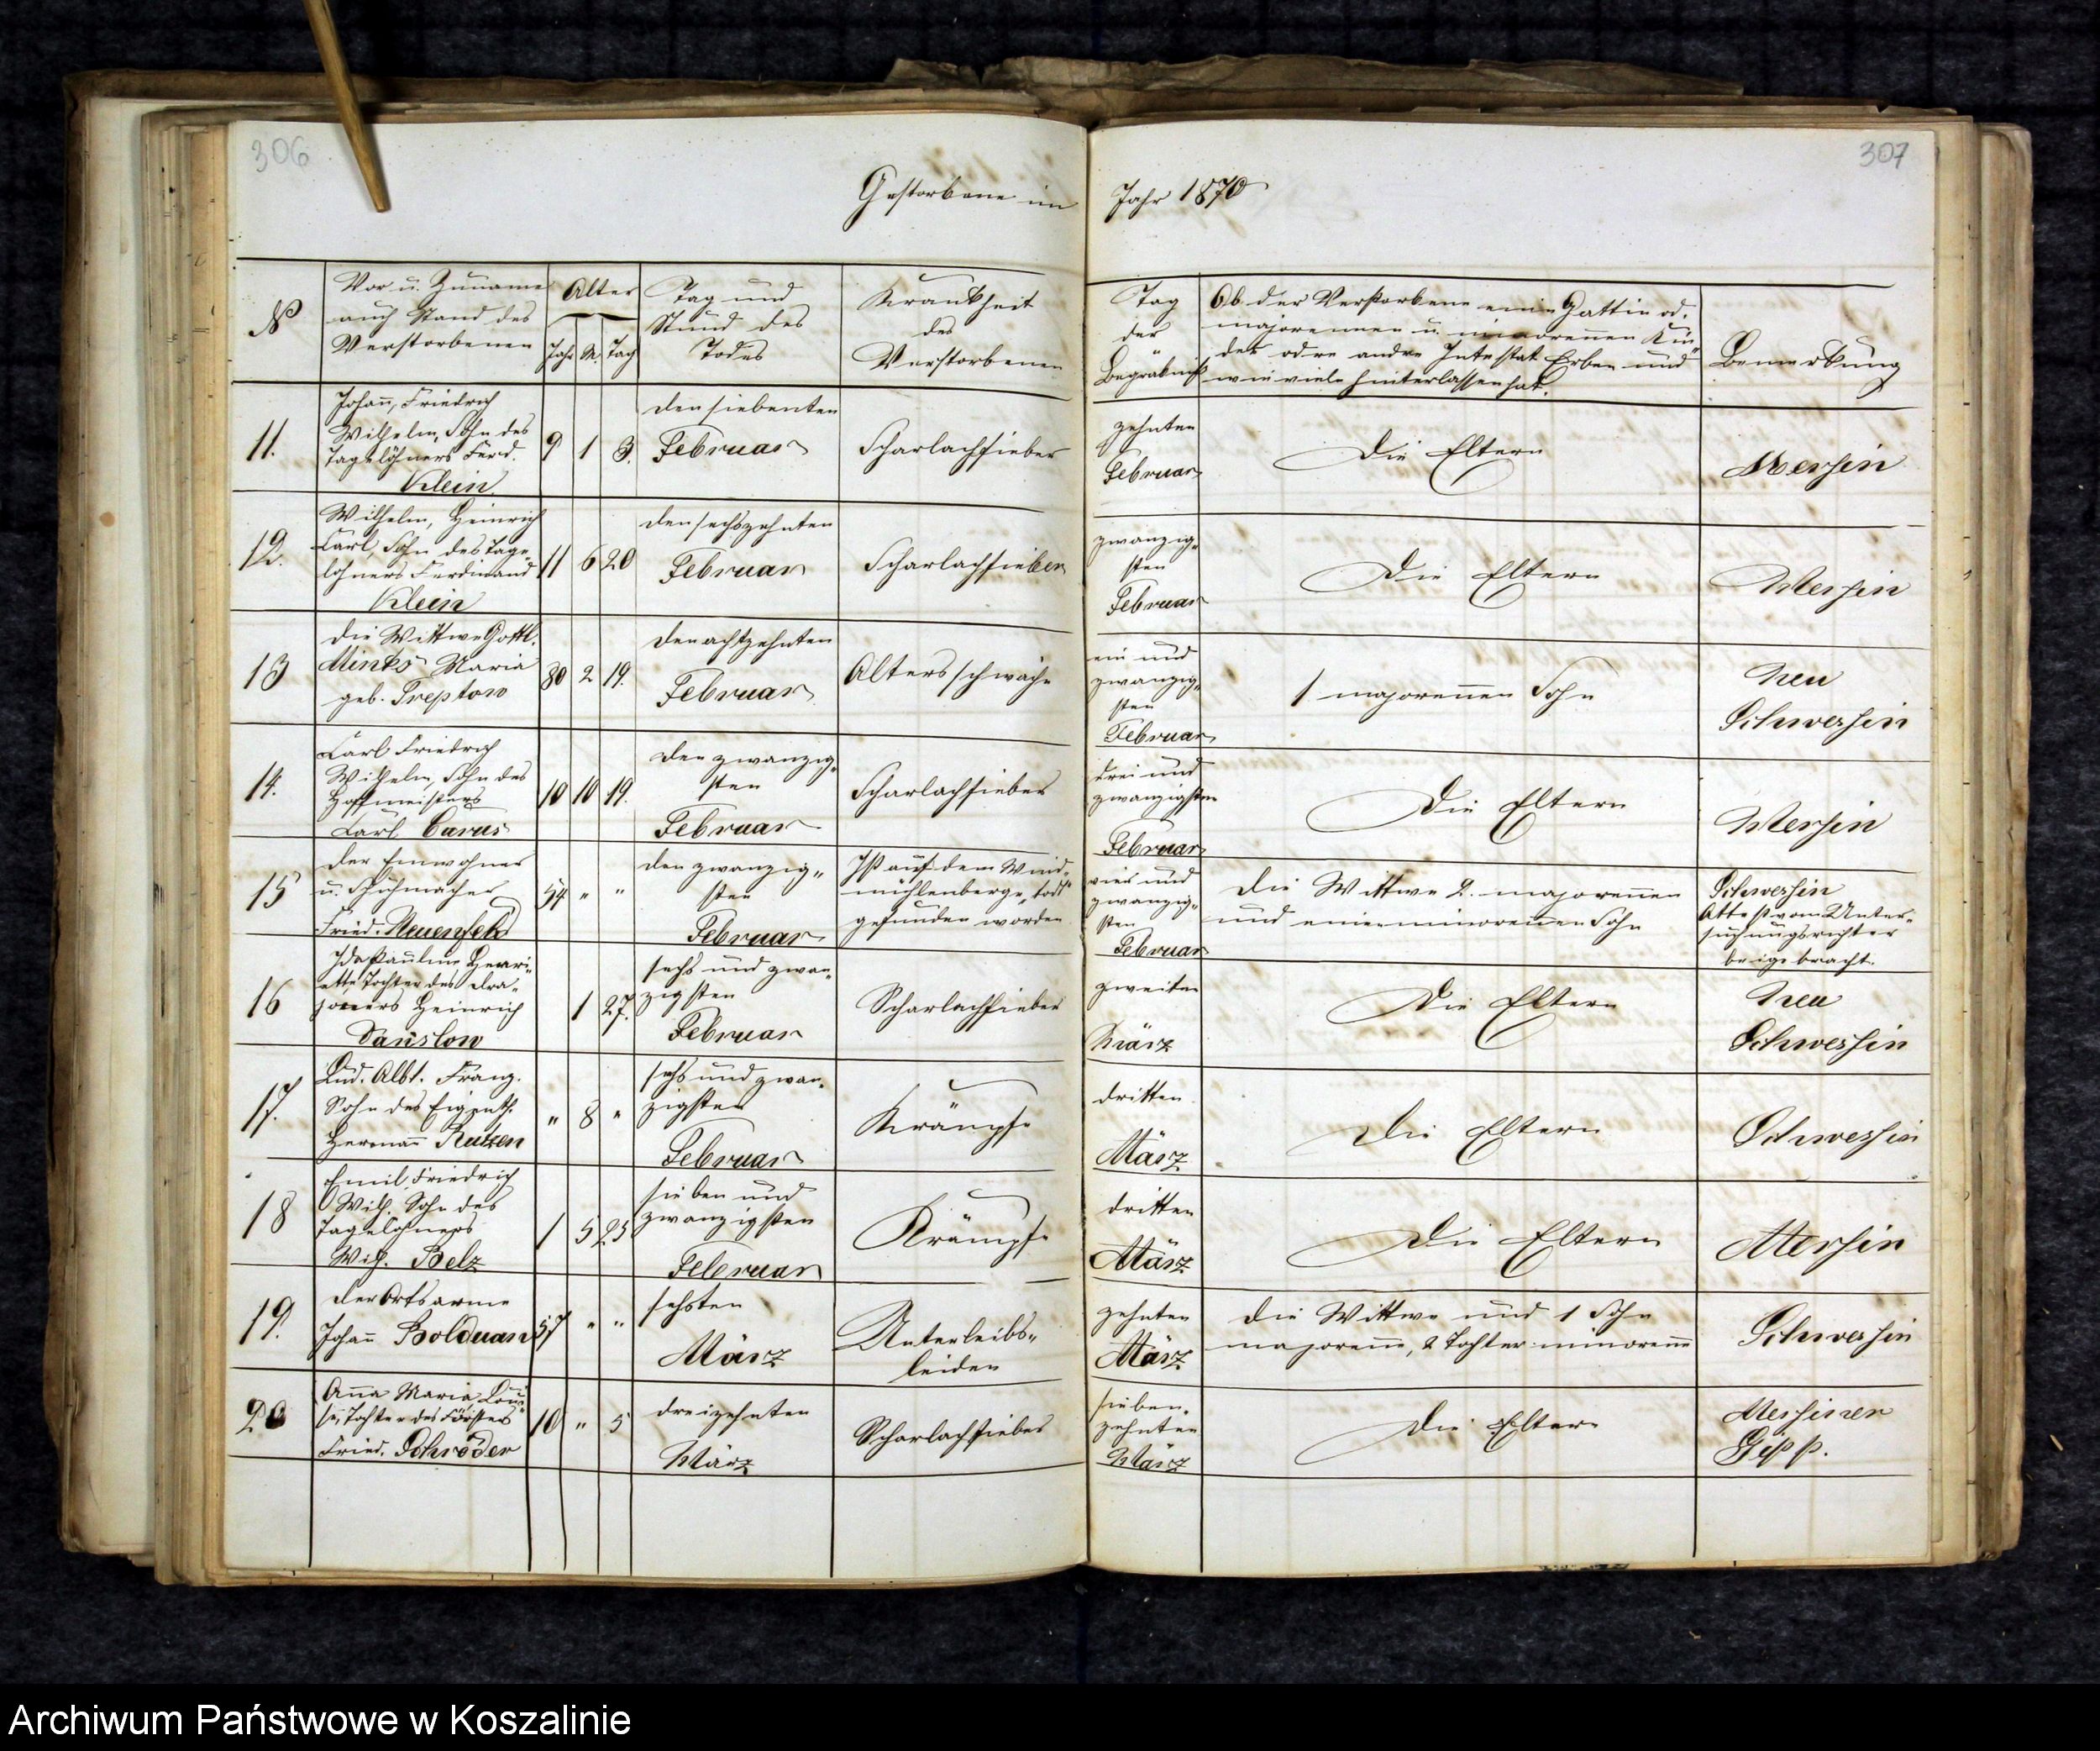 306
307
Gestorbene im
Jahr 1870
№
Vor u. Zuname
auch Stand des
Verstorbenen
Alter
Jahr M. Tag
Tag und
Stund des
Todes
Krankheit
des
Verstorbenen
Tag
der
Begräbniß
Ob der Verstorbene eine Gattin od.
majorennen u. minorennen Kin-
der odre andre Intestat Erben und
wie viele hinterlassen hat.
Bemerkung
11.
Johañ, Friedrich
Wilhelm, Sohn des
Tagelöhners Ferd.
Klein
9 1 3.
den siebenten
Februar
Scharlachfieber
zehnten
Februar
Die Eltern
Mersin
12.
Wilhelm, Heinrich
Carl, Sohn des Tage-
löhners Ferdinand
Klein
11 6 20
den sechszehnten
Februar
Scharlachfieber
zwanzig-
sten
Februar
Die Eltern
Mersin
13
die Wittwe Gottl.
Minks Maria
geb. Treptow
80 2 19.
den achtzehnten
Februar
Altersschwäche
ein und
zwanzig-
sten
Februar
1 majoreñen Sohn
Neu
Schwessin
14.
Carl Friedrich
Wilhelm, Sohn des
Hoffmeisters
Carl Carus
10 10 19.
den zwanzig-
sten
Februar
Scharlachfieber
drei und
zwanzigsten
Februar
Die Eltern
Mersin
15
der Einwohner
u. Schuhmacher
Fried. Neuenfeld
54 " "
den zwanzig-
sten
Februar
Ist auf dem Wind-
mühlenberge todt
gefunden worden
vier und
zwanzig-
sten
Februar
die Wittwe 2. majoreñen
und einen minoreñen Sohn
Schwessin
Attest vom Unter-
suchungsrichter
beigebracht.
16
Ida Pauline Henri-
ette Tochter des Dra-
goners Heinrich
Dauslow
1 27.
sechs und zwan-
zigsten
Februar
Scharlachfieber
zweiten
März
Die Eltern
Neu
Schwessin
17.
Lud. Albt. Franz.
Sohn des Eigenth.
Hermañ Rutzen
" 8 "
sechs und zwan-
zigsten
Februar
Krämpfe
dritten
März
Die Eltern
Schwessin
18
Emil, Friedrich
Wilh. Sohn des
Tagelöhners
Wilh. Belz
1 5 25
sieben und
zwanzigsten
Februar
Krämpfe
dritten
März
Die Eltern
Mersin
19.
der Ortsarme
Johañ Bolduan
57 " "
sechsten
März
Unterleibs-
leiden
zehnten
März
die Wittwe und 1 Sohn
majoreñ, 2 Tochter minoreñ
Schwessin
20
Anna Maria, Loui-
se, Tochter des Försters
Fried. Schröder
10 " 5
dreizehnten
März
Scharlachfieber
sieben-
zehnten
März
Die Eltern
Mersiner
Archiwum Państwowe w Koszalinie